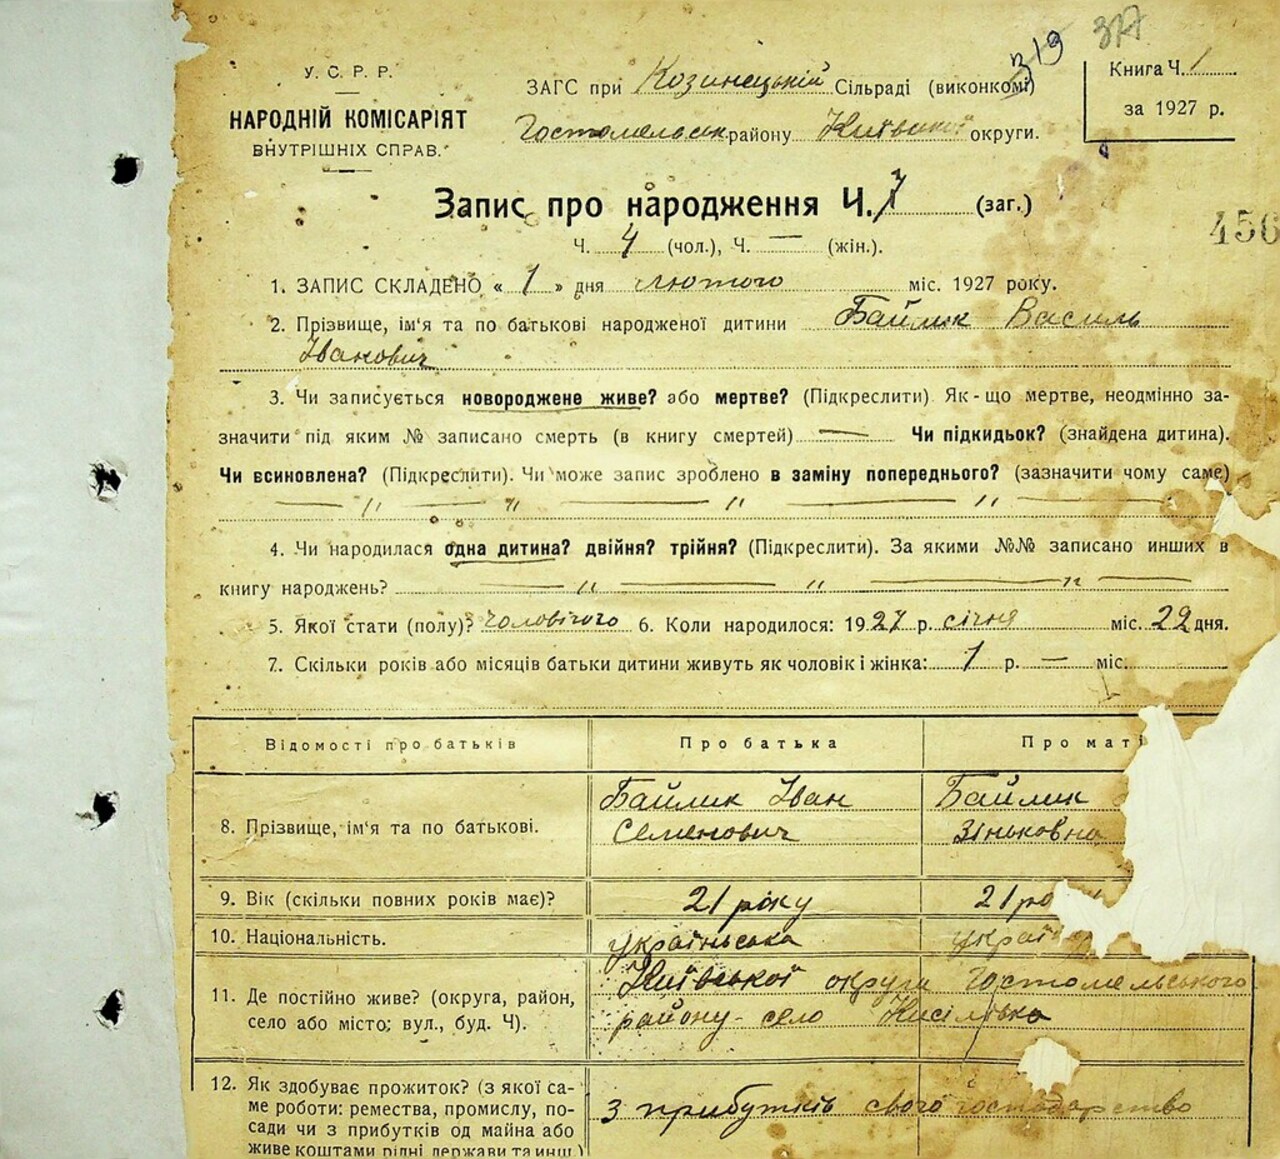 319 377
У. С. Р. Р.
НАРОДНІЙ КОМІСАРІЯТ
ВНУТРІШНІХ СПРАВ.
ЗАГС при Козинецькій Сільраді (виконкомі)
Гостомельськ району Київської округи.
Книга Ч. 1
за 1927 р.
Запис про народження Ч. 7 (заг.)
456
Ч. 4 (чол.), Ч. — (жін.).
1. ЗАПИС СКЛАДЕНО « 1 » дня лютого міс. 1927 року.
2. Прізвище, ім'я та по батькові народженої дитини Байлик Василь
Іванович
3. Чи записується новороджене живе? або мертве? (Підкреслити) Як-що мертве, неодмінно за-
значити під яким № записано смерть (в книгу смертей) — Чи підкидьок? (знайдена дитина).
Чи всиновлена? (Підкреслити). Чи може запис зроблено в заміну попереднього? (зазначити чому саме)
— " — " — " — " —
4. Чи народилася одна дитина? двійня? трійня? (Підкреслити). За якими №№ записано инших в
книгу народжень? — " — " — " —
5. Якої стати (полу)? чоловічого 6. Коли народилося: 1927 р. січня міс. 22 дня.
7. Скільки років або місяців батьки дитини живуть як чоловік і жінка: 1 р. — міс.
Відомості про батьків Про батька Про маті
8. Прізвище, ім'я та по батькові. Байлик Іван Байлик
Семенович Зіньковна
9. Вік (скільки повних років має)? 21 року 21 ро
10. Національність. українська украї
11. Де постійно живе? (округа, район, Київської округи Гостомельського
село або місто; вул., буд. Ч). району - село Кисілівка
12. Як здобуває прожиток? (з якої са-
ме роботи: ремества, промислу, по- з прибутків свого господарство
сади чи з прибутків од майна або
живе коштами рідні держави та инш.)